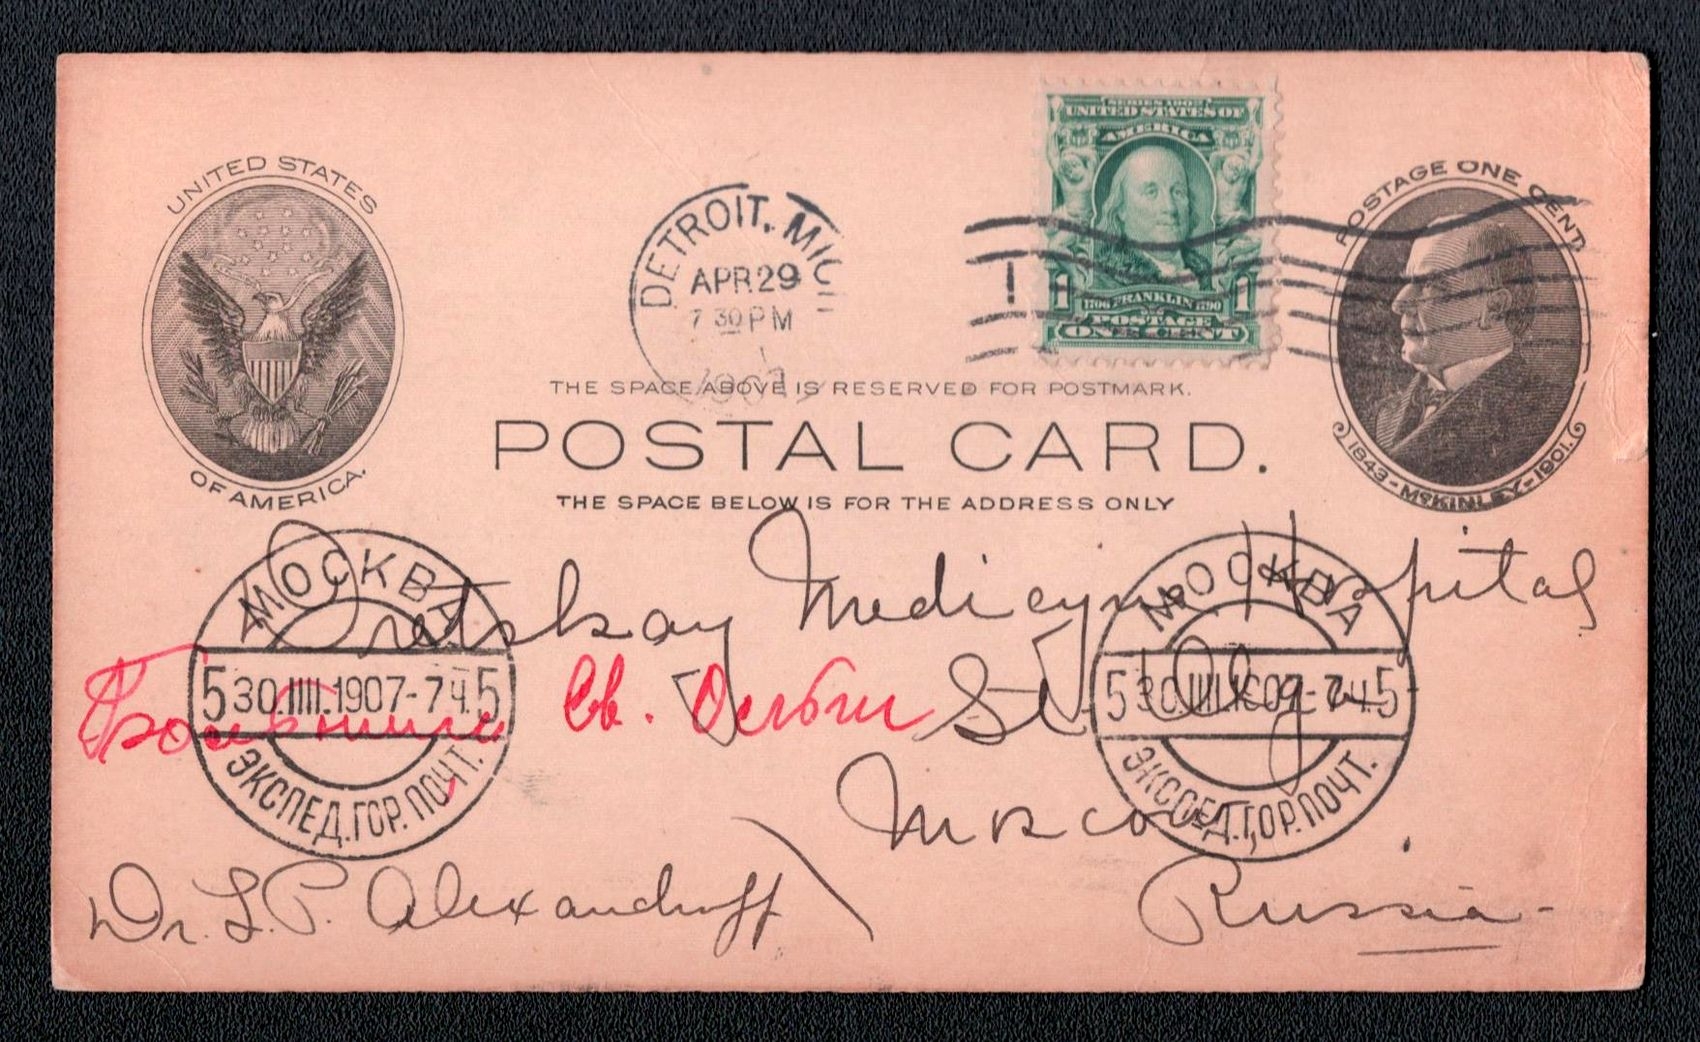 SERIES 1902
UNITED STATES OF
AMERICA
1 1706 FRANKLIN 1790 1
POSTAGE
ONE CENT
UNITED STATES
OF AMERICA.
DETROIT, MIC
APR 29
7 30 PM
1907
POSTAGE ONE CENT.
1843 - McKINLEY - 1901.
THE SPACE ABOVE IS RESERVED FOR POSTMARK.
POSTAL CARD.
THE SPACE BELOW IS FOR THE ADDRESS ONLY
МОСКВА
5 30.IIII.1907-7Ч. 5
ЭКСПЕД.ГОР.ПОЧТ.
МОСКВА
5 30.IIII.1907-7Ч. 5
ЭКСПЕД.ГОР.ПОЧТ.
Medicyne Hospital
Св. Ольги St. Olga
Moscow,
Dr. L. P. Alexandroff Russia